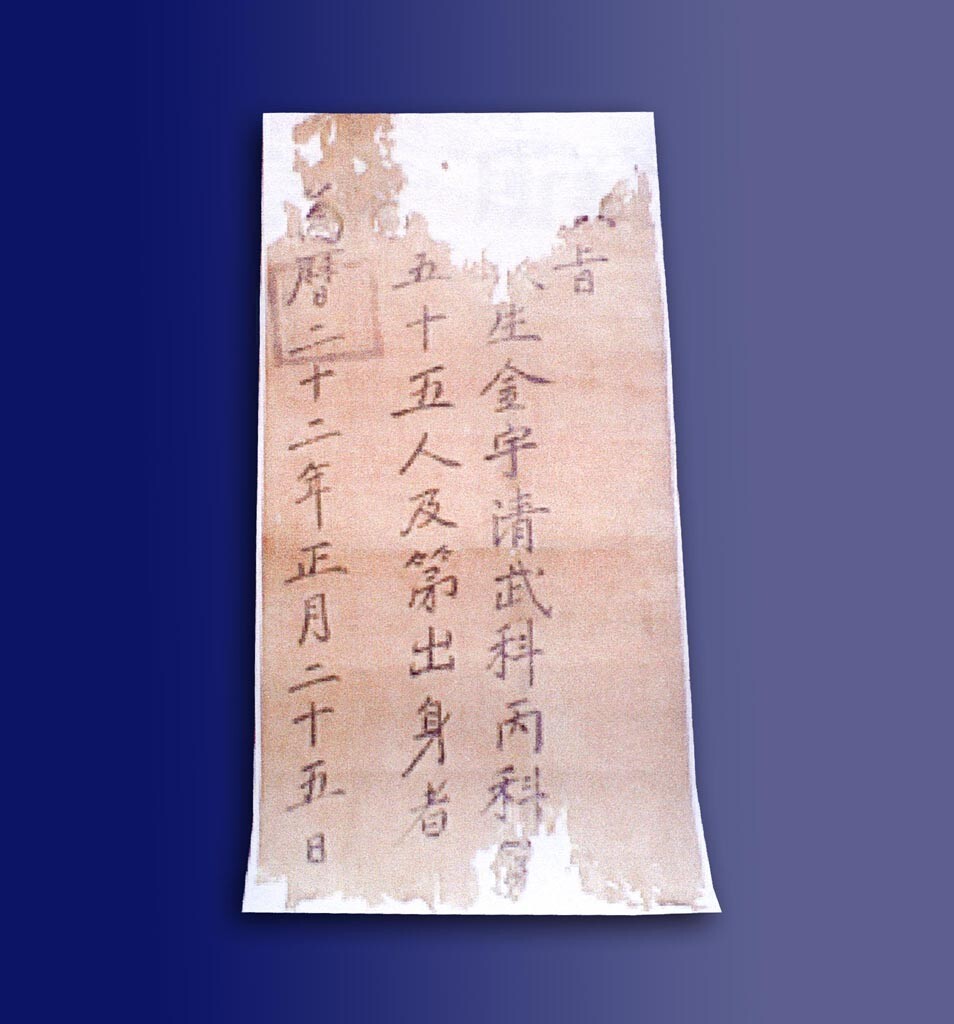 旨
生金宇清武科丙科第
五十五人及第出身者
萬曆二十二年正月二十五日